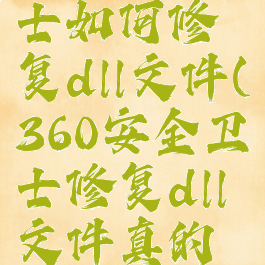 士如何修
复dll文件(
360安全卫
士修复dll
文件真的